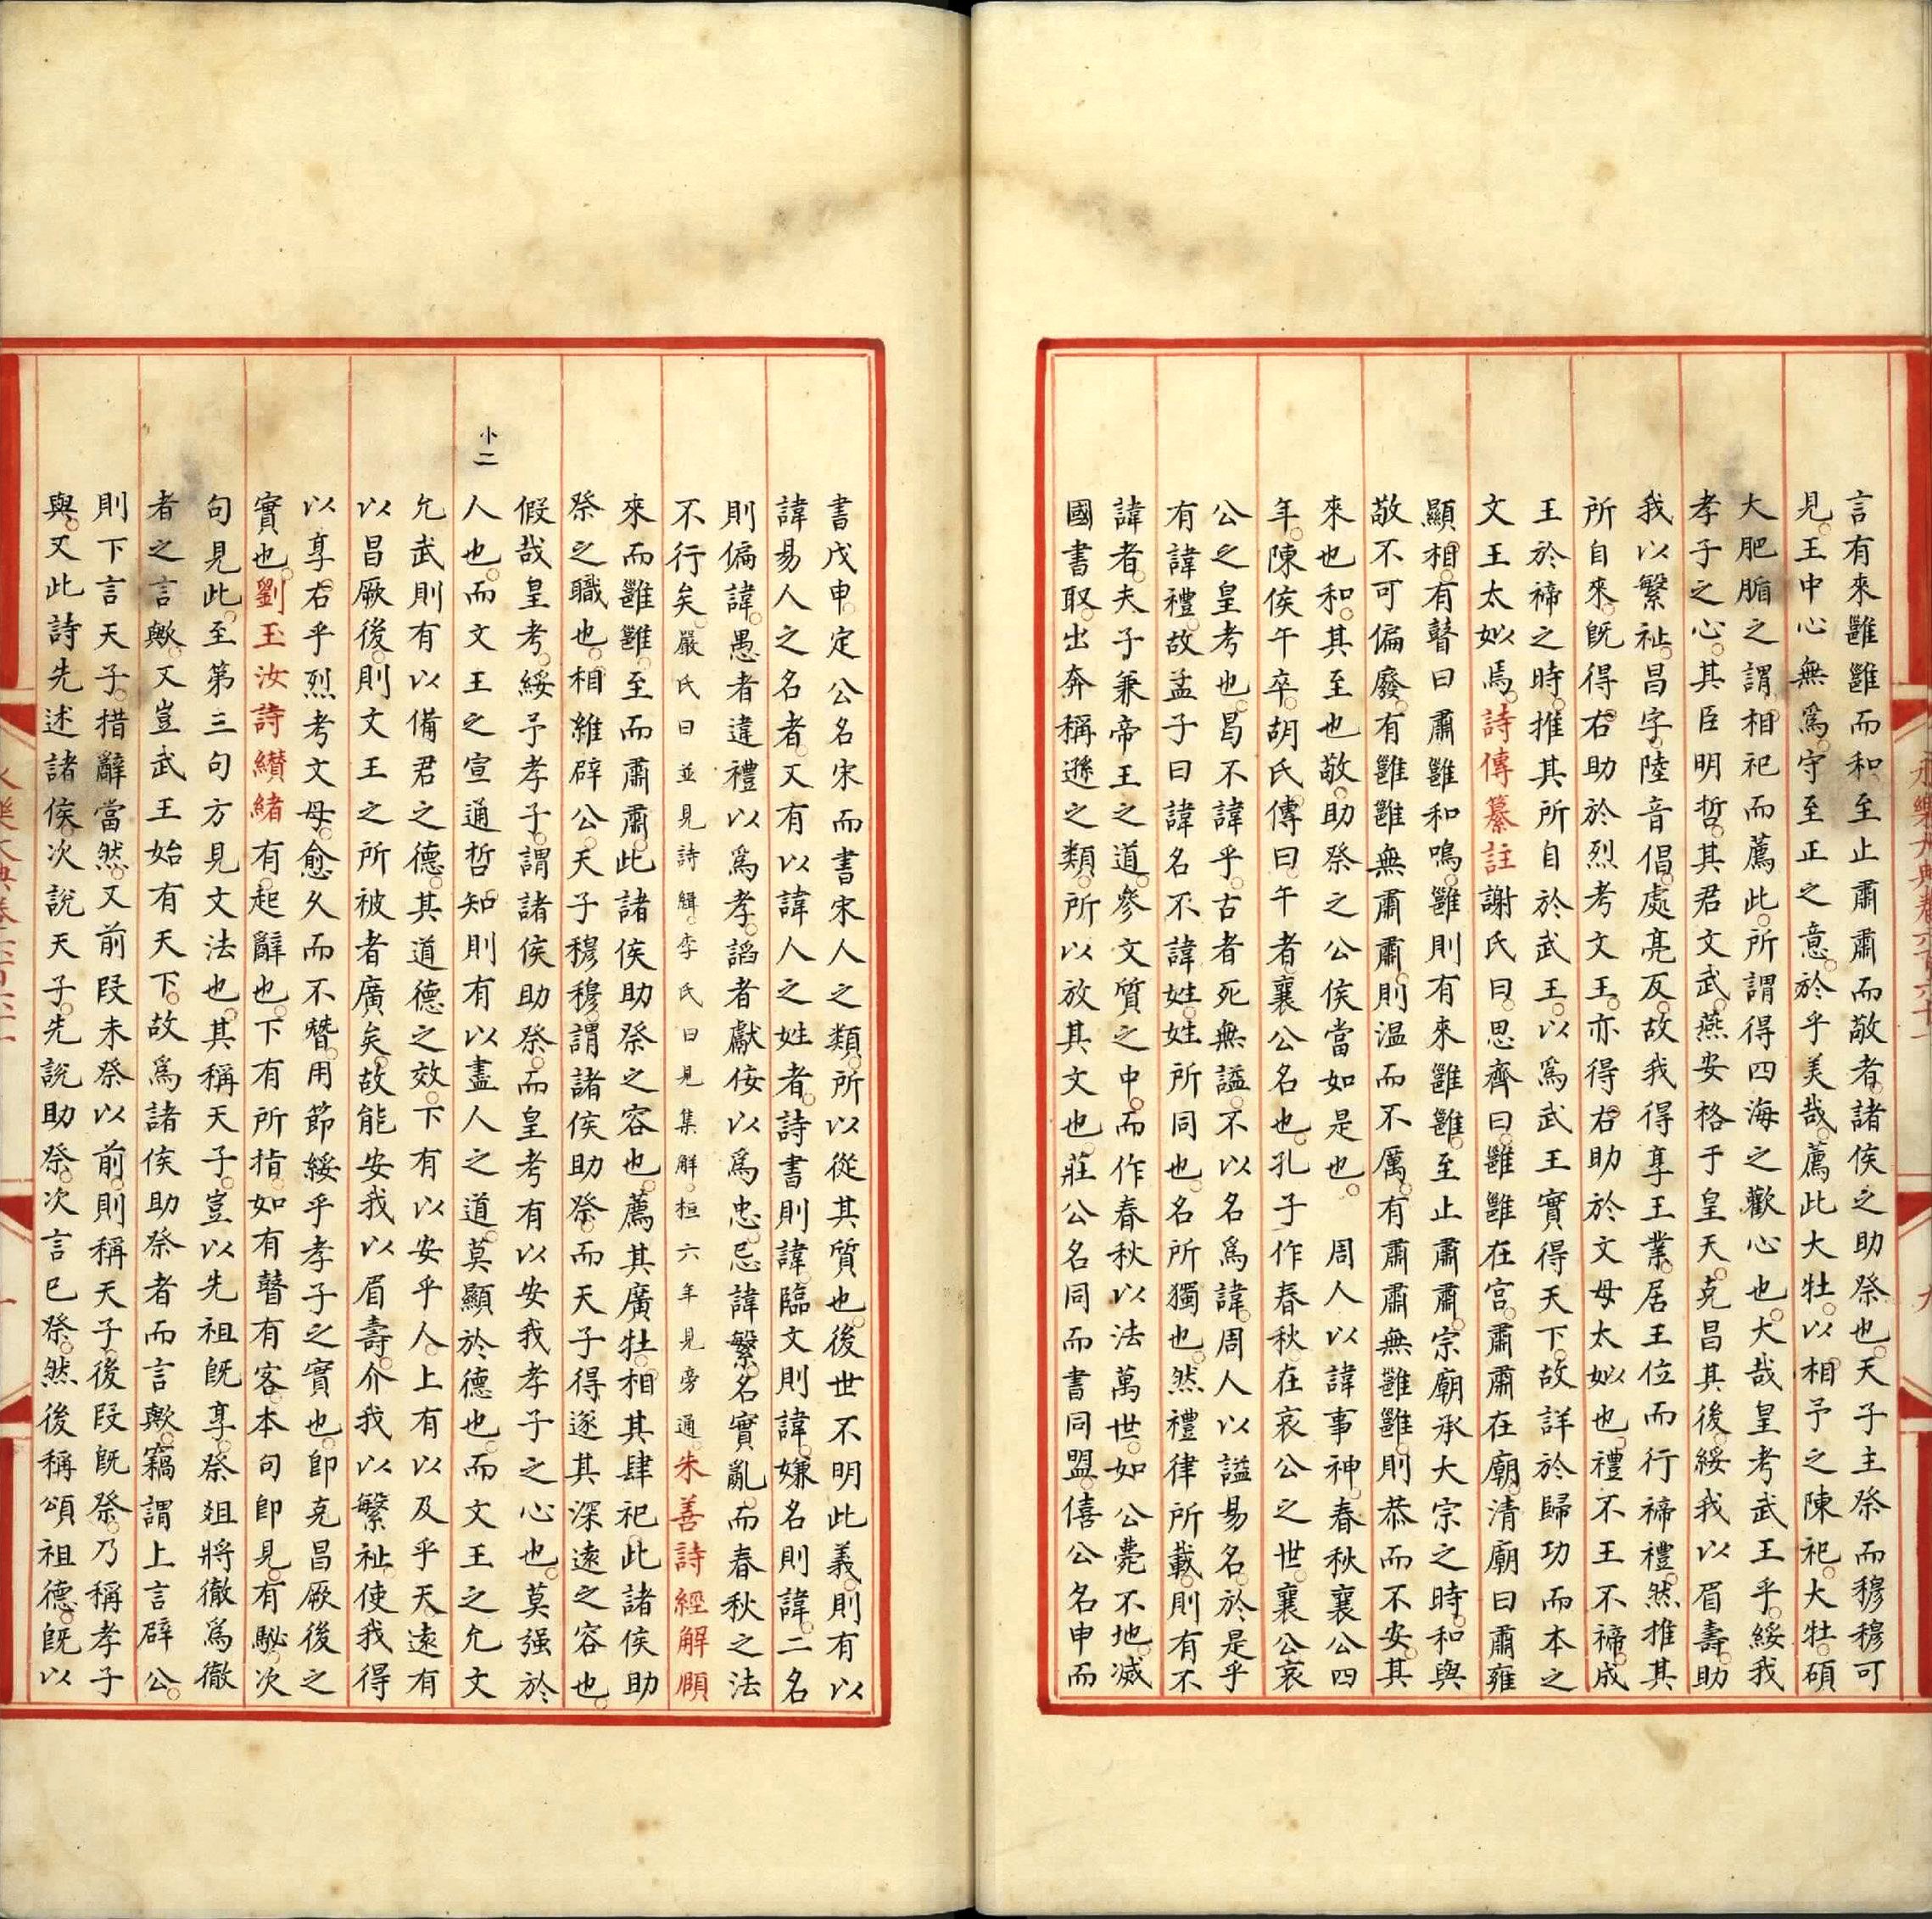 言有來雝雝而和至止肅肅而敬者諸侯之助祭也天子主祭而穆穆可
見王中心無爲守至正之意於乎美哉薦此大牡以相予之陳祀大牡碩
大肥腯之謂相祀而薦此所謂得四海之歡心也大哉皇考武王乎綏我
孝子之心其臣明哲其君文武燕安格于皇天克昌其後綏我以眉壽助
我以繁祉昌字陸音倡處亮反故我得享王業居王位而行禘禮然推其
所自來旣得右助於烈考文王亦得右助於文母太姒也禮不王不禘成
王於禘之時推其所自於武王以爲武王實得天下故詳於歸功而本之
文王太姒焉詩傳纂註謝氏曰思齊曰雝雝在宮肅肅在廟清廟曰肅雍
顯相有瞽曰肅雝和鳴雝則有來雝雝至止肅肅宗廟承大宗之時和與
敬不可偏廢有雝雝無肅肅則温而不厲有肅肅無雝雝則恭而不安其
來也和其至也敬助祭之公侯當如是也 周人以諱事神春秋襄公四
年陳侯午卒胡氏傳曰午者襄公名也孔子作春秋在哀公之世襄公哀
公之皇考也曷不諱乎古者死無謚不以名爲諱周人以謚易名於是乎
有諱禮故孟子曰諱名不諱姓姓所同也名所獨也然禮律所載則有不
諱者夫子兼帝王之道參文質之中而作春秋以法萬世如公薨不地滅
國書取出奔稱遜之類所以放其文也莊公名同而書同盟僖公名申而
書戊申定公名宋而書宋人之類所以從其質也後世不明此義則有以
諱易人之名者又有以諱人之姓者詩書則諱臨文則諱嫌名則諱二名
則偏諱愚者違禮以爲孝謟者獻佞以爲忠忌諱繁名實亂而春秋之法
不行矣嚴氏曰並見詩緝李氏曰見集解桓六年見旁通朱善詩經解頤
來而雝雝至而肅肅此諸侯助祭之容也薦其廣牡相其肆祀此諸侯助
祭之職也相維辟公天子穆穆謂諸侯助祭而天子得遂其深遠之容也
假哉皇考綏予孝子謂諸侯助祭而皇考有以安我孝子之心也莫强於
小二
人也而文王之宣通哲知則有以盡人之道莫顯於德也而文王之允文
允武則有以備君之德其道德之效下有以安乎人上有以及乎天遠有
以昌厥後則文王之所被者廣矣故能安我以眉壽介我以繁祉使我得
以享右乎烈考文母愈久而不替用節綏乎孝子之實也卽克昌厥後之
實也劉玉汝詩纉緒有起辭也下有所指如有瞽有客本句卽見有駜次
句見此至第三句方見文法也其稱天子豈以先祖旣享祭俎將徹爲徹
者之言歟又豈武王始有天下故爲諸侯助祭者而言歟竊謂上言辟公
則下言天子措辭當然又前段未祭以前則稱天子後段旣祭乃稱孝子
與又此詩先述諸侯次說天子先說助祭次言已祭然後稱頌祖德旣以